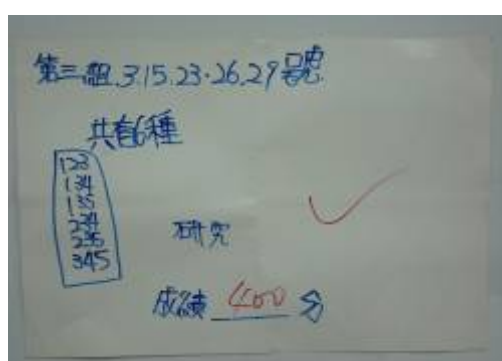 第三組 3.15.23.26.29號
共有6種
123
134
135
234
235
345
研究
成績 400 分